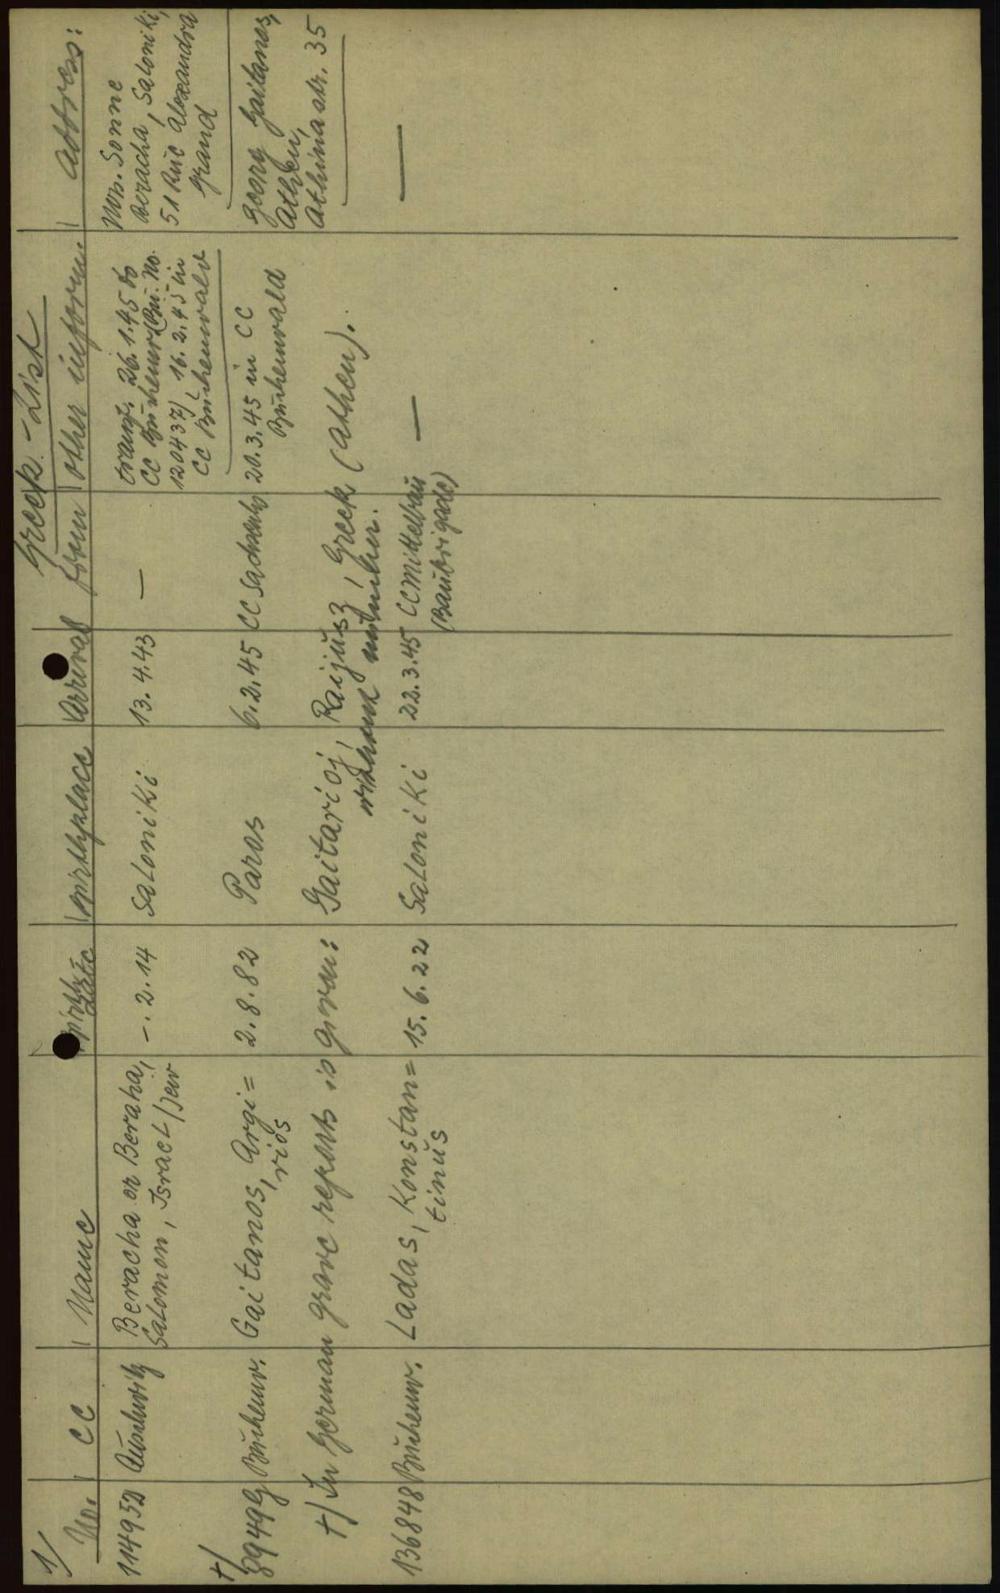 1/
Greek-List
No. | CC | Name | Birthdate | Birthplace | Arrival | from | other inform. | Address:
114952 Auschwitz Beracha or Beraha, -.2.14 Saloniki 13.4.43 — transf. 26.1.45 to Mos. Sonne
Salomon, Israel/Jew CC Buchenw. (Bu. No. Beracha, Saloniki,
120437) 16.2.45 in 51 Rue Alexandra
CC Buchenwald Grand
+/
8949 Buchenw. Gaitanos, Argi= 2.8.82 Paros 6.2.45 CC Sachsenh 20.3.45 in CC Georg Gaitanos,
rios Buchenwald Athen,
Athinastr. 35
+/ In German grave reports is given: Gaitarioj, Raijusz, Greek (Athen).
without number.
136848 Buchenw. Ladas, Konstan= 15.6.22 Saloniki 22.3.45 CC Mittelbau — —
tinus (Baubrigade)